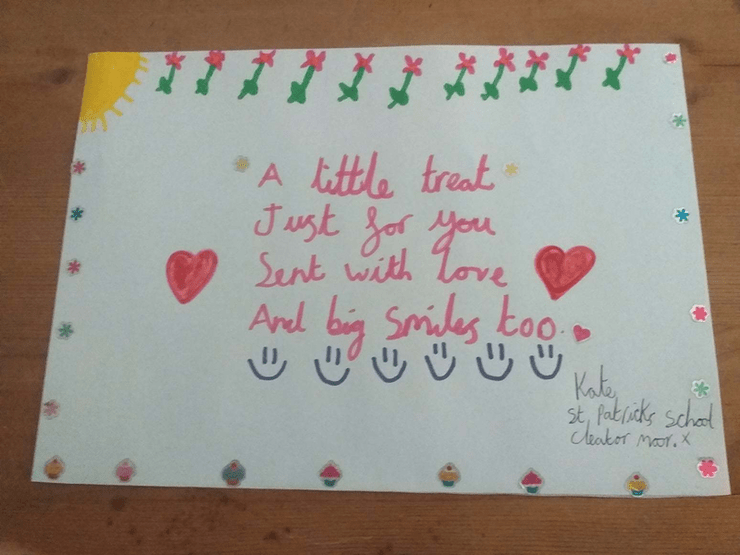 A little treat
Just for you
Sent with love
And big smiles too.
Kate,
St, Patricks School
Cleator moor. x